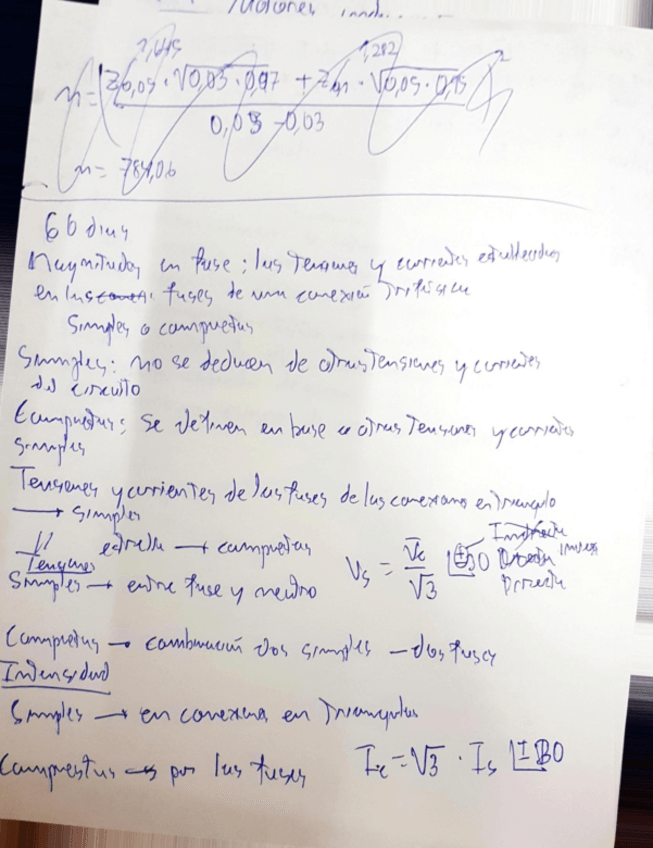 1,645 1,282
n = (Z0,05 · √0,03 · 0,97 + Z0,1 · √0,05 · 0,95)²
0,05 - 0,03
n = 784,06
66 dias
Magnitudes en fase: las Tensiones y corrientes establecidas
en las fases de una conexión Trifásica
Simples o compuestas
Simples: no se deducen de otras Tensiones y corrientes
del circuito
Compuestas: Se definen en base a otras Tensiones y corrientes
simples
Tensiones y corrientes de las fases de las conexiones en Triangulo
→ simples
" estrella → compuestas
Tensiones
Simples → entre fase y neutro
Vs = Vc / √3 ∟±30 Directa
Compuestas → combinación dos simples — dos fases
Intensidad
Simples → en conexion en Triangulos
Compuestas → por las fases Ic = √3 · Is ∟±30